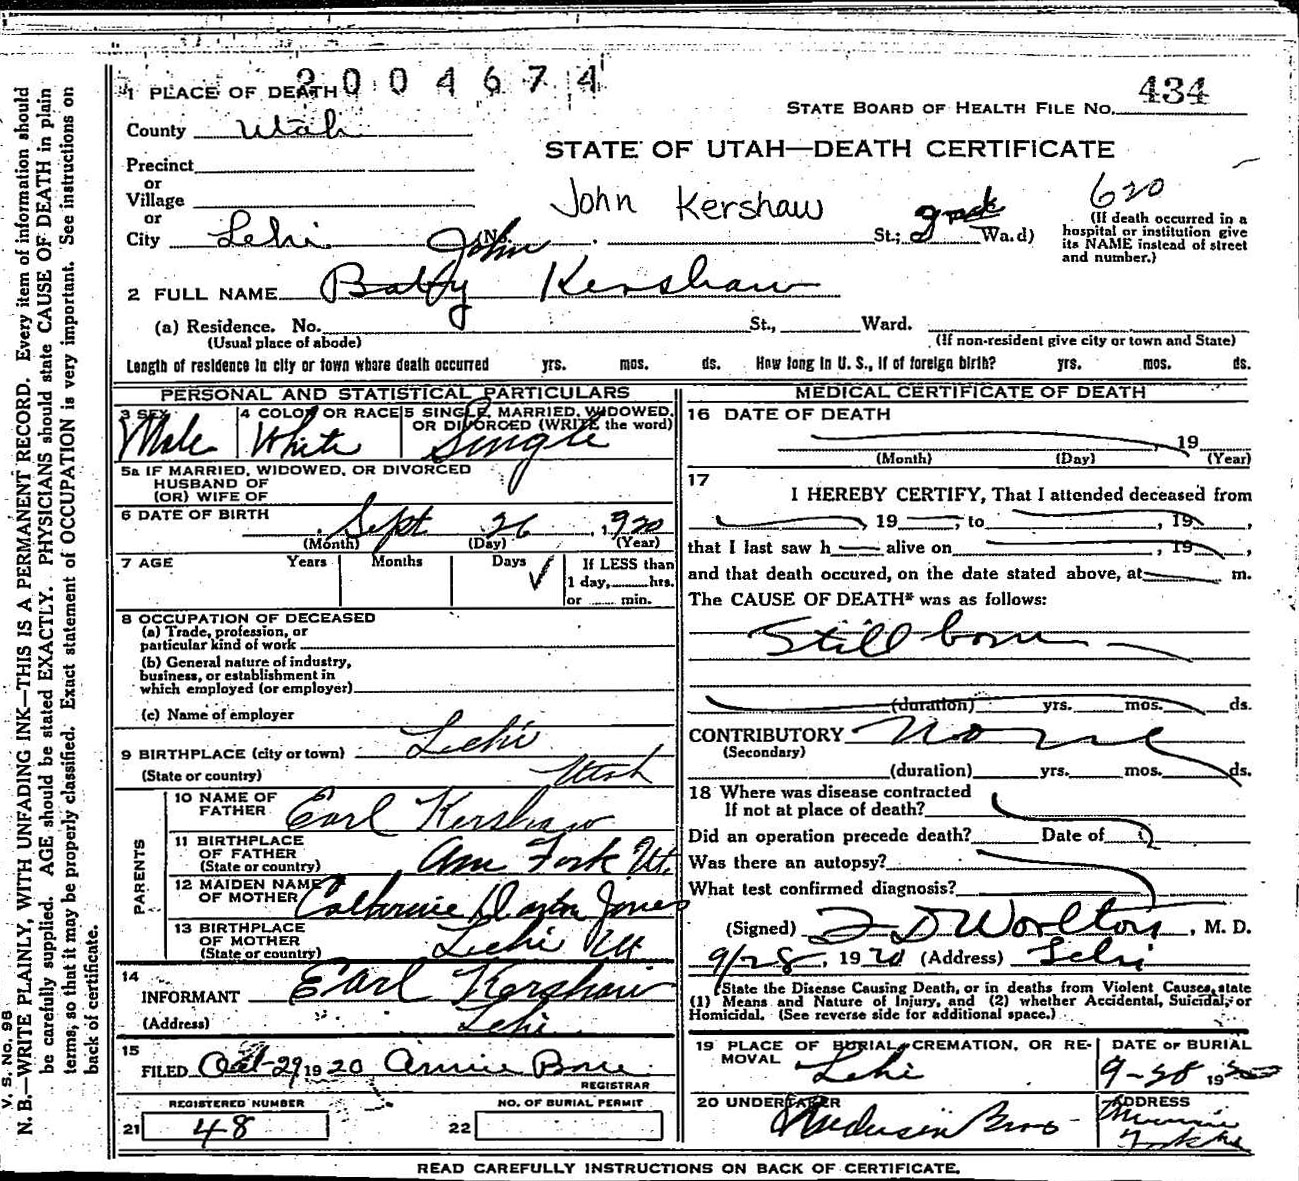 2004674
1 PLACE OF DEATH
STATE BOARD OF HEALTH FILE No. 434
County Utah
STATE OF UTAH—DEATH CERTIFICATE
Precinct
or
Village
or
City Lehi No. St.; 2nd Wa.d)
John Kershaw
620
(If death occurred in a
hospital or institution give
its NAME instead of street
and number.)
John
2 FULL NAME Baby Kershaw
(a) Residence. No. St., Ward.
(Usual place of abode) (If non-resident give city or town and State)
Length of residence in city or town where death occurred yrs. mos. ds. How long in U. S., if of foreign birth? yrs. mos. ds.
PERSONAL AND STATISTICAL PARTICULARS
3 SEX 4 COLOR OR RACE 5 SINGLE, MARRIED, WIDOWED,
OR DIVORCED (WRITE the word)
Male White Single
5a IF MARRIED, WIDOWED, OR DIVORCED
HUSBAND OF
(OR) WIFE OF
6 DATE OF BIRTH
Sept 26, 1920
(Month) (Day) (Year)
7 AGE Years Months Days If LESS than
1 day, hrs.
or min.
8 OCCUPATION OF DECEASED
(a) Trade, profession, or
particular kind of work
(b) General nature of industry,
business, or establishment in
which employed (or employer)
(c) Name of employer
9 BIRTHPLACE (city or town) Lehi
(State or country) Utah
PARENTS
10 NAME OF
FATHER Earl Kershaw
11 BIRTHPLACE
OF FATHER
(State or country) Am Fork Ut.
12 MAIDEN NAME
OF MOTHER Catherine Jones
13 BIRTHPLACE
OF MOTHER
(State or country) Lehi Ut
14
INFORMANT Earl Kershaw
(Address) Lehi
15
FILED Oct-29 1920 Annie
REGISTRAR
REGISTERED NUMBER NO. OF BURIAL PERMIT
21 48 22
MEDICAL CERTIFICATE OF DEATH
16 DATE OF DEATH
, 19
(Month) (Day) (Year)
17
I HEREBY CERTIFY, That I attended deceased from
, 19 , to , 19 ,
that I last saw h alive on , 19 ,
and that death occured, on the date stated above, at m.
The CAUSE OF DEATH* was as follows:
Still born
(duration) yrs. mos. ds.
CONTRIBUTORY None
(Secondary)
(duration) yrs. mos. ds.
18 Where was disease contracted
If not at place of death?
Did an operation precede death? Date of
Was there an autopsy?
What test confirmed diagnosis?
(Signed) F D Worlton, M. D.
9/28, 1920 (Address) Lehi
*State the Disease Causing Death, or in deaths from Violent Causes, state
(1) Means and Nature of Injury, and (2) whether Accidental, Suicidal, or
Homicidal. (See reverse side for additional space.)
19 PLACE OF BURIAL, CREMATION, OR RE-
MOVAL Lehi
DATE OF BURIAL
9-28 1920
20 UNDERTAKER
Anderson Bros
ADDRESS
READ CAREFULLY INSTRUCTIONS ON BACK OF CERTIFICATE.
V. S. No. 98
N. B.—WRITE PLAINLY, WITH UNFADING INK—THIS IS A PERMANENT RECORD. Every item of information should
be carefully supplied. AGE should be stated EXACTLY. PHYSICIANS should state CAUSE OF DEATH in plain
terms, so that it may be properly classified. Exact statement of OCCUPATION is very important. See instructions on
back of certificate.